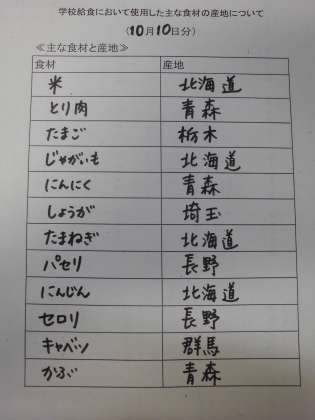 学校給食において使用した主な食材の産地について
(10月10日分)
≪主な食材と産地≫
食材 産地
米 北海道
とり肉 青森
たまご 栃木
じゃがいも 北海道
にんにく 青森
しょうが 埼玉
たまねぎ 北海道
パセリ 長野
にんじん 北海道
セロリ 長野
キャベツ 群馬
かぶ 青森